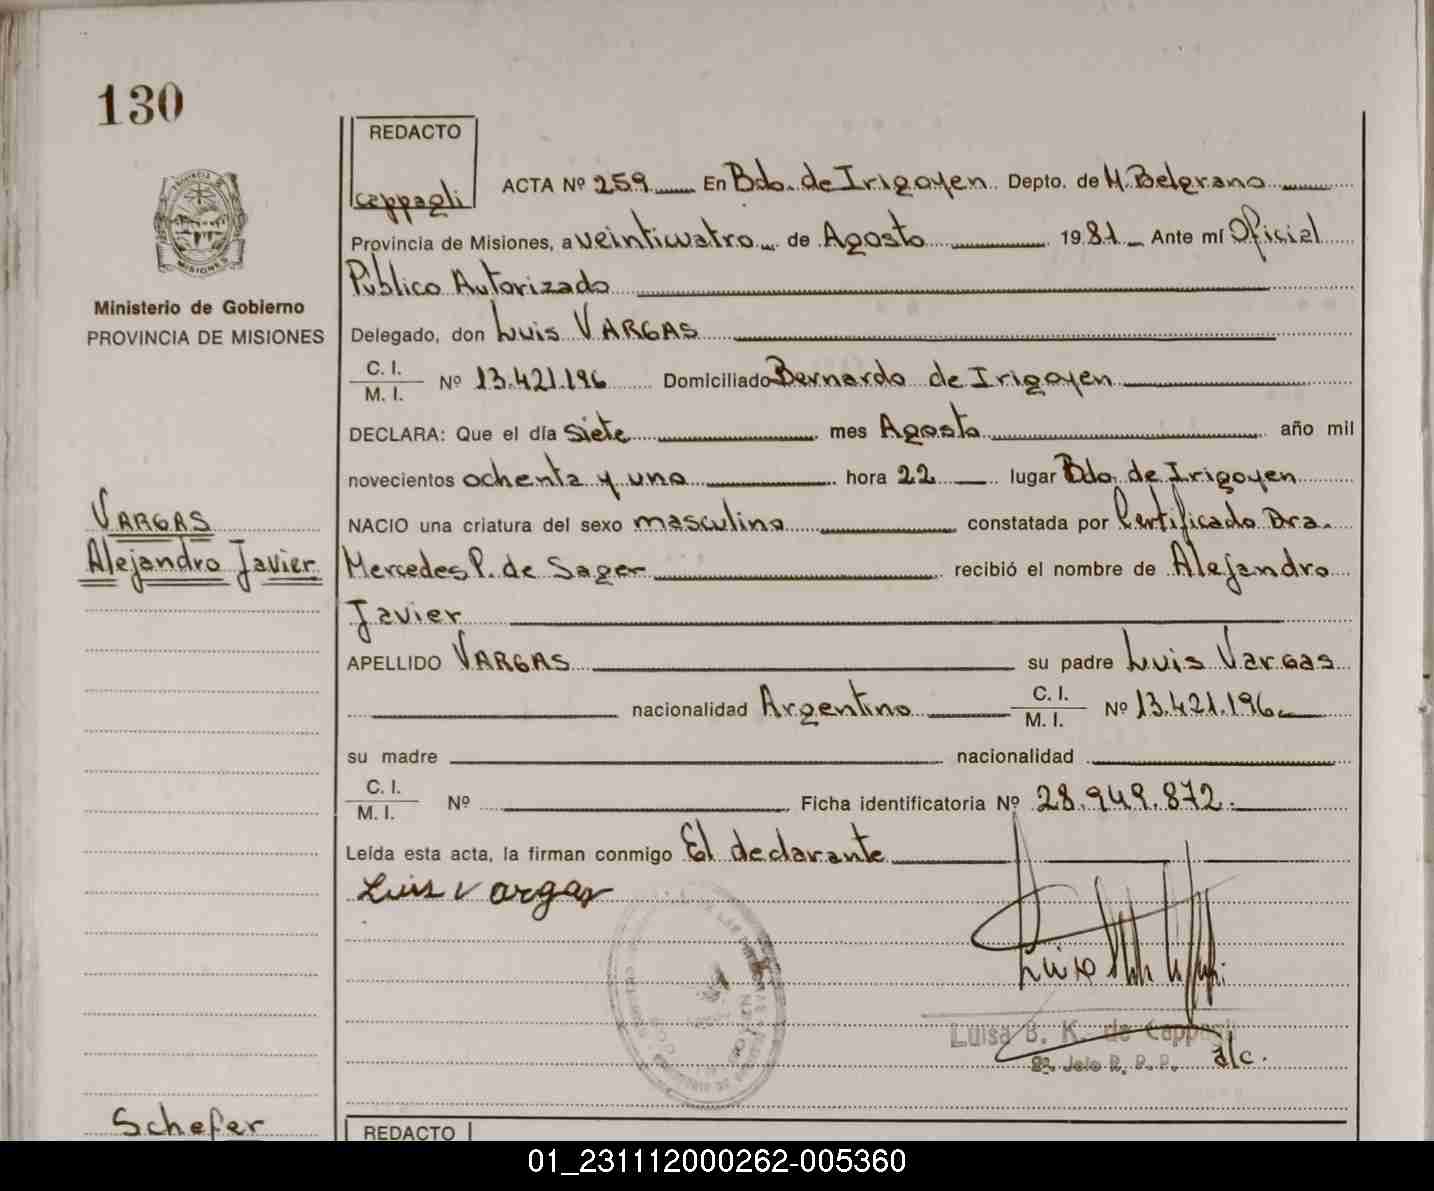 130
REDACTO
cappagli
ACTA Nº 259 En Bdo. de Irigoyen Depto. de M. Belgrano
Provincia de Misiones, a veinticuatro de Agosto 1981 Ante mí Oficial
Público Autorizado
Delegado, don Luis VARGAS
C. I.
M. I. Nº 13.421.196 Domiciliado Bernardo de Irigoyen
DECLARA: Que el día siete mes Agosto año mil
novecientos ochenta y uno hora 22 lugar Bdo. de Irigoyen
NACIO una criatura del sexo masculino constatada por Certificado Dra.
Mercedes P. de Sager recibió el nombre de Alejandro
Javier
APELLIDO VARGAS su padre Luis Vargas
nacionalidad Argentino C. I.
M. I. Nº 13.421.196
su madre nacionalidad
C. I.
M. I. Nº Ficha identificatoria Nº 28.949.872.
Leída esta acta, la firman conmigo El declarante
Luis Vargas
Luisa B. K. de Cappagli
a/c.
REDACTO
PROVINCIA DE
MISIONES
Ministerio de Gobierno
PROVINCIA DE MISIONES
VARGAS
Alejandro Javier
Schefer
01_231112000262-005360